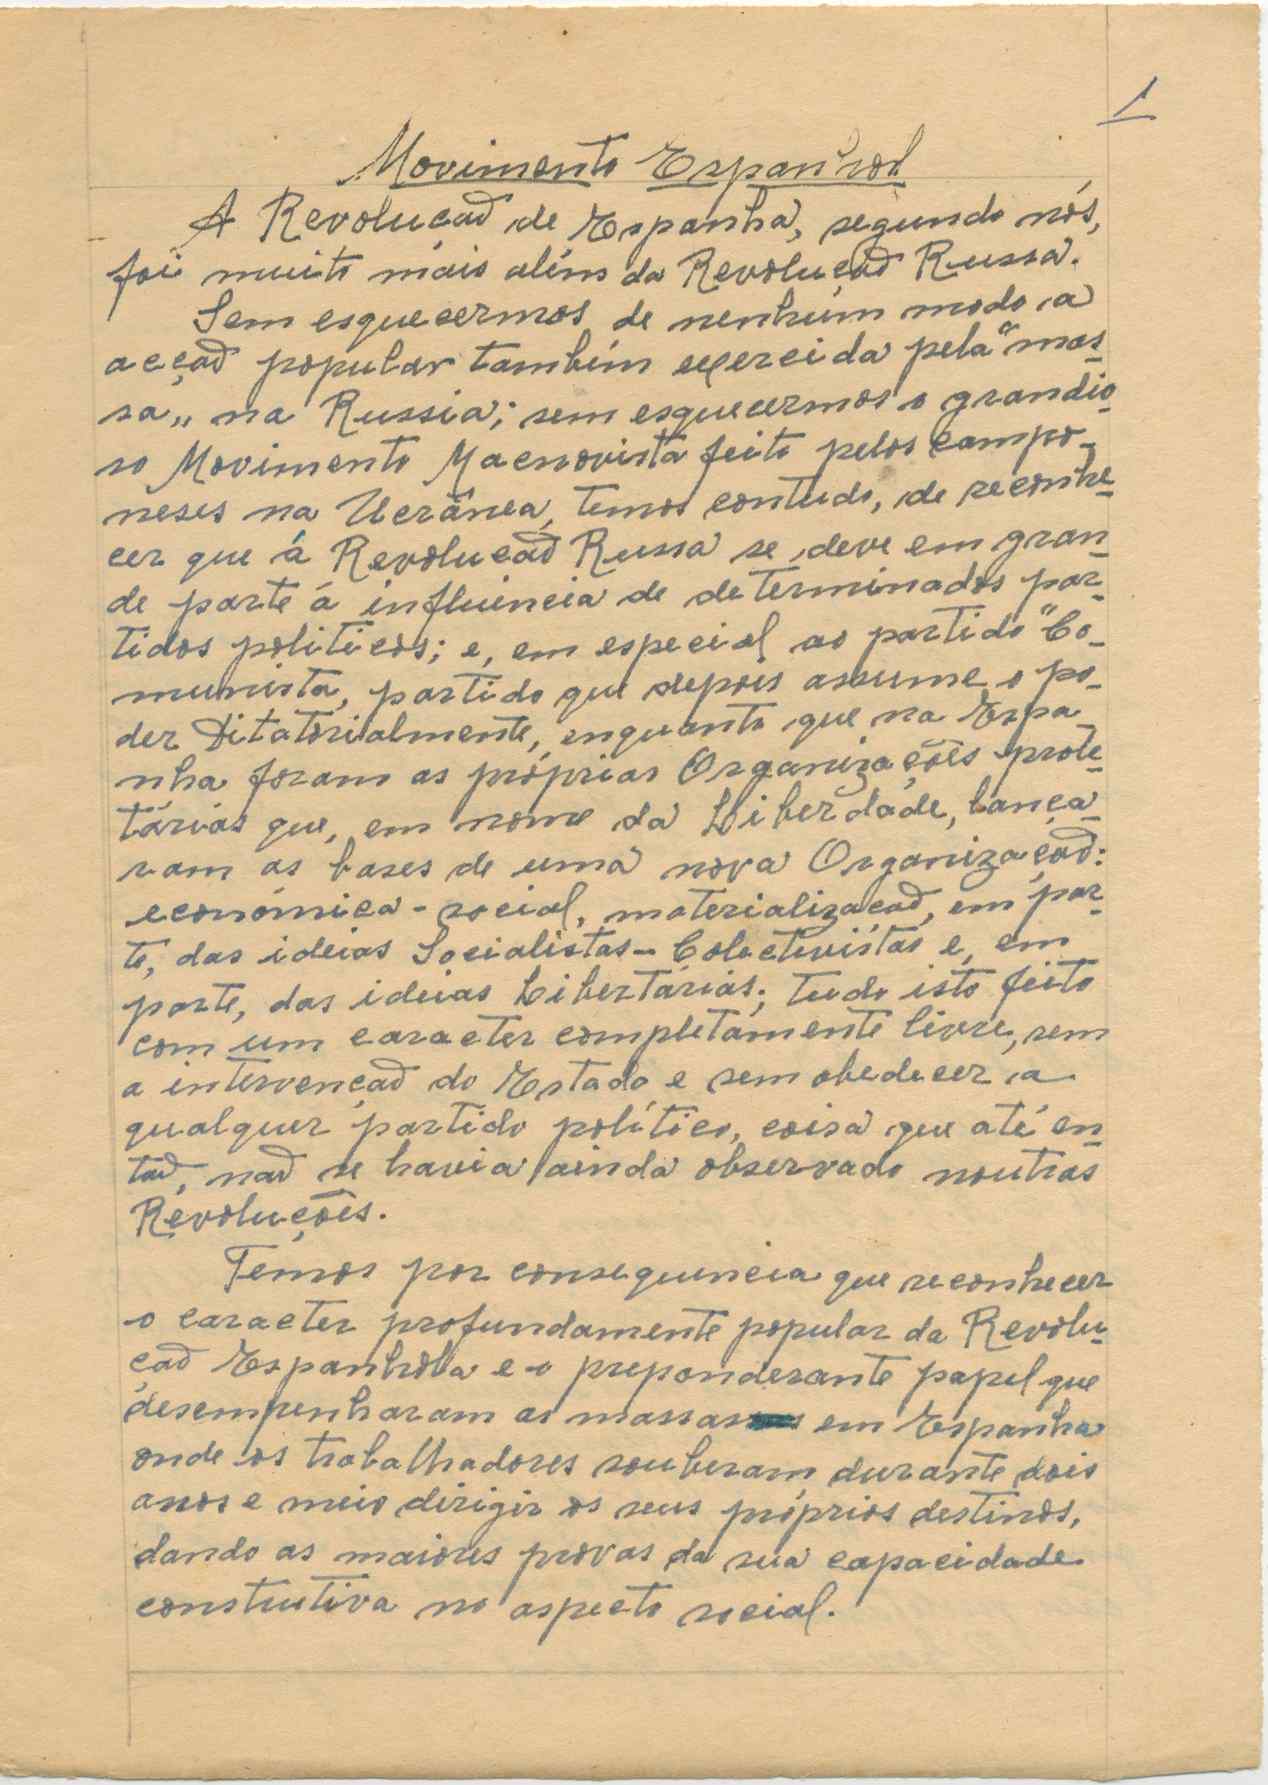 1
Movimento Espanhol
A Revolução de Espanha, segundo nós,
foi muito mais além da Revolução Russa.
Sem esquecermos de nenhum modo a
acção popular também exercida pela "mas-
sa„ na Russia; sem esquecermos o grandio-
so Movimento Macnovista feito pelos campo-
neses na Ucrânea, temos contudo, de reconhe-
cer que á Revolução Russa se deve em gran-
de parte á influência de determinados par-
tidos politicos; e, em especial ao partido "Co-
munista, partido que depois assume o po-
der Ditatorialmente, enquanto que na Espa-
nha foram as próprias Organizações prole-
tárias que, em nome da Liberdade, lança-
ram as bases de uma nova Organização:
económica-social, materialização, em par-
te, das ideias Socialistas-Colectivistas e, em
parte, das ideias Libertárias; tudo isto feito
com um caracter completamente livre, sem
a intervenção do Estado e sem obedecer a
qualquer partido político, coisa que até en-
tão, não se havia ainda observado noutras
Revoluções.
Temos por consequência que reconhecer
o caracter profundamente popular da Revolu-
ção Espanhola e o preponderante papel que
desempenharam as massas em Espanha
onde os trabalhadores souberam durante dois
anos e meio dirigir os seus próprios destinos,
dando as maiores provas da sua capacidade
constutiva no aspecto social.